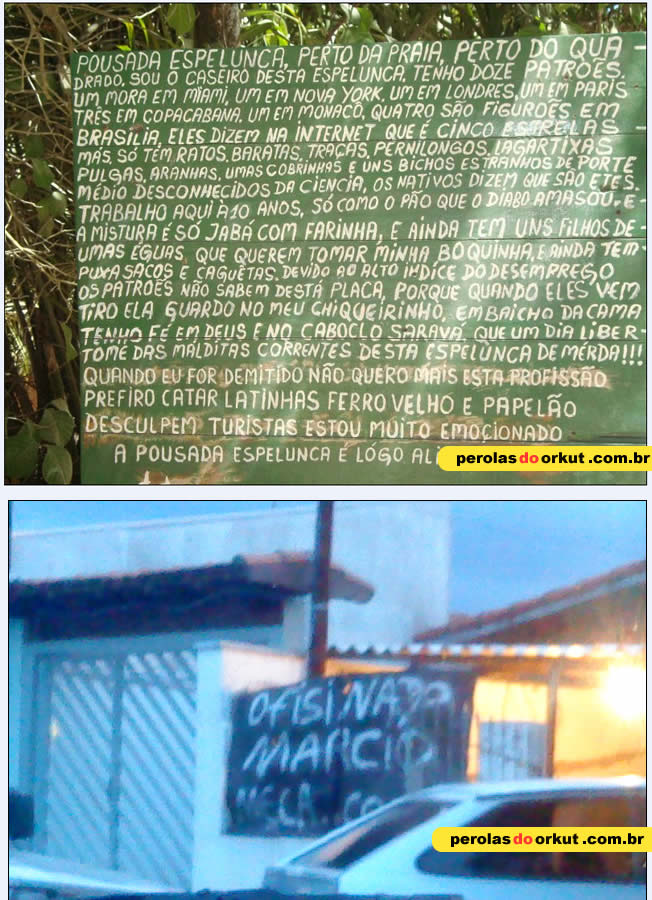 POUSADA ESPELUNCA, PERTO DA PRAIA, PERTO DO QUA-
DRADO, SOU O CASEIRO DESTA ESPELUNCA, TENHO DOZE PATRÕES.
UM MORA EM MIAMI, UM EM NOVA YORK, UM EM LONDRES, UM EM PARIS
TRÊS EM COPACABANA, UM EM MONACÔ, QUATRO SÃO FIGURÕES EM
BRASILIA, ELES DIZEM NA INTERNET QUE É CINCO ESTRELAS
MAS, SÓ TEM RATOS, BARATAS, TRAÇAS, PERNILONGOS, LAGARTIXAS
PULGAS, ARANHAS, UMAS COBRINHAS E UNS BICHOS ESTRANHOS DE PORTE
MÉDIO DESCONHECIDOS DA CIENCIA, OS NATIVOS DIZEM QUE SÃO ETES.
TRABALHO AQUI À 10 ANOS, SÓ COMO O PÃO QUE O DIABO AMASOU, E-
A MISTURA É SÓ JABÁ COM FARINHA, E AINDA TEM UNS FILHOS DE-
UMAS ÉGUAS, QUE QUEREM TOMAR MINHA BOQUINHA, E AINDA TEM-
PUXA SACOS E CAGUETAS. DEVIDO AO ALTO INDICE DO DESEMPREGO
OS PATRÕES NÃO SABEM DESTA PLACA, PORQUE QUANDO ELES VEM
TIRO ELA GUARDO NO MEU CHIQUEIRINHO, EM BAICHO DA CAMA
TENHO FÉ EM DEUS E NO CABOCLO SARAVÁ, QUE UM DIA LIBER-
TOME DAS MALDITAS CORRENTES DESTA ESPELUNCA DE MÉRDA!!!
QUANDO EU FOR DEMITIDO NÃO QUERO MAIS ESTA PROFISSÃO
PREFIRO CATAR LATINHAS FERRO VELHO E PAPELÃO
DESCULPEM TURISTAS ESTOU MUITO EMOÇIONADO
A POUSADA ESPELUNCA É LÓGO ALI
perolasdoorkut.com.br
OFISINA DO
MARCIO
perolasdoorkut.com.br